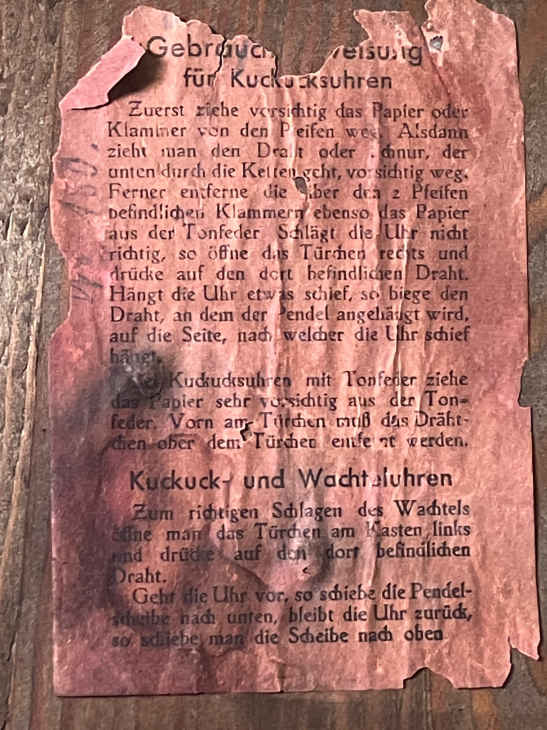 Gebrauchsanweisung
für Kuckucksuhren
Zuerst ziehe vorsichtig das Papier oder
Klammer von den Pfeifen weg. Alsdann
zieht man den Draht oder Schnur, der
unten durch die Ketten geht, vorsichtig weg.
Ferner entferne die über den 2 Pfeifen
befindlichen Klammern ebenso das Papier
aus der Tonfeder. Schlägt die Uhr nicht
richtig, so öffne das Türchen rechts und
drücke auf den dort befindlichen Draht.
Hängt die Uhr etwas schief, so biege den
Draht, an dem der Pendel angehängt wird,
auf die Seite, nach welcher die Uhr schief
hängt.
Bei Kuckucksuhren mit Tonfeder ziehe
das Papier sehr vorsichtig aus der Ton-
feder. Vorn am Türchen muß das Dräht-
chen ober dem Türchen entfernt werden.
Kuckuck- und Wachteluhren
Zum richtigen Schlagen des Wachtels
öffne man das Türchen am Kasten links
und drücke auf den dort befindlichen
Draht.
Geht die Uhr vor, so schiebe die Pendel-
scheibe nach unten, bleibt die Uhr zurück,
so schiebe man die Scheibe nach oben